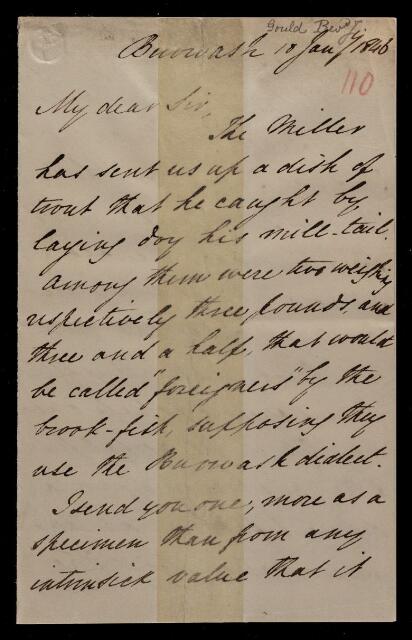 Gould Revd J.
Burwash 10 Jany 1846
110
My dear Sir,
The Miller
has sent us up a dish of
trout that he caught by
laying dry his mill-tail.
Among them were two weighing
respectively three pounds, and
three and a half, that would
be called "foreigners" by the
brook-fish, supposing they
use the Burwash dialect.
I send you one, more as a
specimen than from any
intrinsick value that it